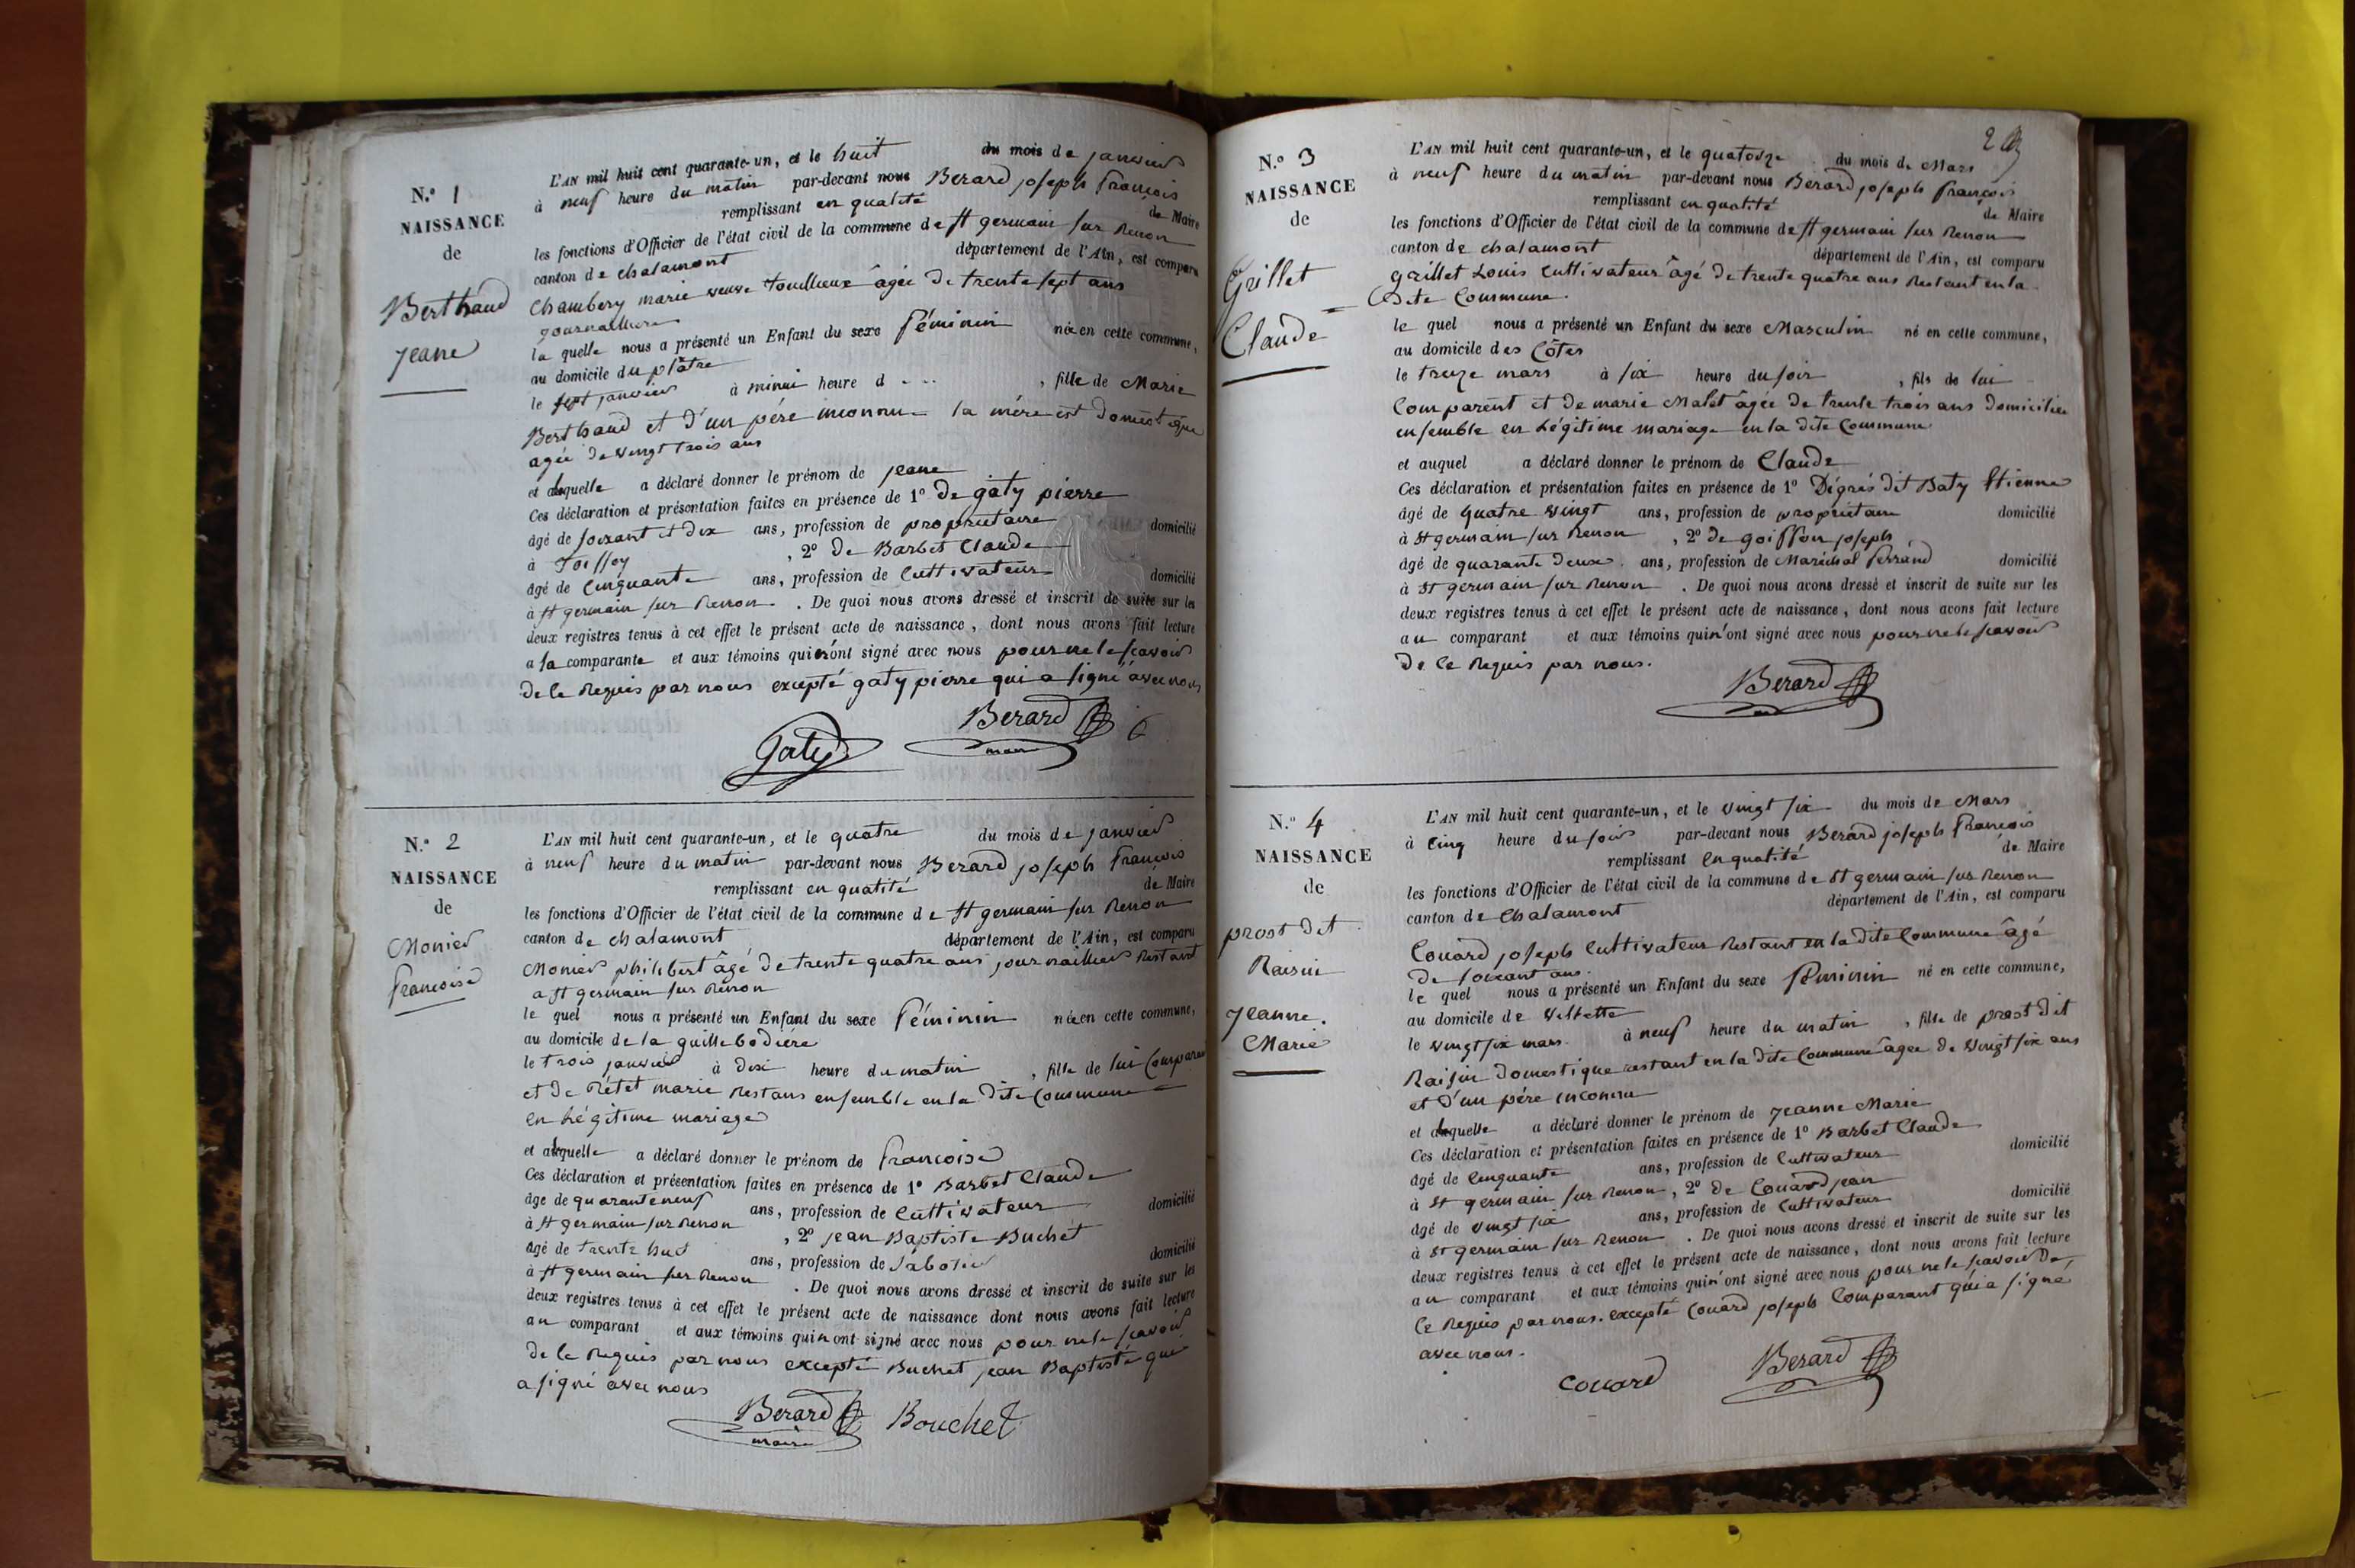 N.º 1
NAISSANCE
de
Berthaud
jeane
L'AN mil huit cent quarante-un, et le huit du mois de janvier
à neuf heure du matin par-devant nous Berard joseph françois
remplissant en qualité de Maire
les fonctions d'Officier de l'état civil de la commune de st germain sur Renon
canton de chalamont département de l'Ain, est comparu
Chambery marie veuve touillieux âgée de trente sept ans
journalliere
la quelle nous a présenté un Enfant du sexe féminin née en cette commune,
au domicile du plâtre
le sept janvier à minui heure d , fille de Marie
Berthaud et d'un pére inconnu la mére est domestique
agée de vingt trois ans
et a laquelle a déclaré donner le prénom de jeane
Ces déclaration et présentation faites en présence de 1º De gaty pierre
âgé de soixant et dix ans, profession de proprietaire domicilié
à , 2º de Barbet Claude
âgé de Cinquante ans, profession de Cultivateur domicilié
à st germain sur Renon . De quoi nous avons dressé et inscrit de suite sur les
deux registres tenus à cet effet le présent acte de naissance, dont nous avons fait lecture
a la comparante et aux témoins qui n'ont signé avec nous pour ne le scavoir
de ce Requis par nous excepté gaty pierre qui a signé avec nous
Gaty Berard
maire
N.º 2
NAISSANCE
de
Monier
françoise
L'AN mil huit cent quarante-un, et le quatre du mois de janvier
à neuf heure du matin par-devant nous Berard joseph françois
remplissant en qualité de Maire
les fonctions d'Officier de l'état civil de la commune de st germain sur Renon
canton de chalamont département de l'Ain, est comparu
Monier philibert âgé de trente quatre ans journaillier Restant
a st germain sur Renon
le quel nous a présenté un Enfant du sexe féminin née en cette commune,
au domicile de la guillebodiére
le trois janvier à dix heure du matin , fille de lui Comparant
et de Rétet marie Restans ensemble en la dite Commune
en Légitime mariage
et a laquelle a déclaré donner le prénom de françoise
Ces déclaration et présentation faites en présence de 1º Barbet Claude
âgé de quarante neuf ans, profession de Cultivateur domicilié
à st germain sur Renon , 2º jean Baptiste Buchet
âgé de trente huit ans, profession de Sabotier domicilié
à st germain sur Renon . De quoi nous avons dressé et inscrit de suite sur les
deux registres tenus à cet effet le présent acte de naissance dont nous avons fait lecture
au comparant et aux témoins qui n'ont signé avec nous pour ne le scavoir
de ce Requis par nous excepté Buchet jean Baptiste qui
a signé avec nous
Berard Bouchet
maire
2
N.º 3
NAISSANCE
de
Grillet
Claude
L'AN mil huit cent quarante-un, et le quatorze du mois de Mars
à neuf heure du matin par-devant nous Berard joseph françois
remplissant en qualité de Maire
les fonctions d'Officier de l'état civil de la commune de st germain sur Renon
canton de chalamont département de l'Ain, est comparu
grillet Louis Cultivateur âgé de trente quatre ans Restant en la
Dite Commune.
le quel nous a présenté un Enfant du sexe Masculin né en cette commune,
au domicile des Côtes
le treize mars à six heure du soir , fils de lui
Comparent et de marie Malet âgée de trente trois ans domiciliée
ensemble en Légitime mariage en la dite Commune
et auquel a déclaré donner le prénom de Claude
Ces déclaration et présentation faites en présence de 1º Dégrés dit Baty Etienne
âgé de quatre vingt ans, profession de propriétaire domicilié
à St germain sur Renon , 2º de goiffon joseph
âgé de quarante deux ans, profession de Maréchal ferrand domicilié
à St germain sur Renon . De quoi nous avons dressé et inscrit de suite sur les
deux registres tenus à cet effet le présent acte de naissance, dont nous avons fait lecture
au comparant et aux témoins qui n'ont signé avec nous pour ne le scavoir
de ce Requis par nous.
Berard
N.º 4
NAISSANCE
de
prost dit
Raisin
jeanne
Marie
L'AN mil huit cent quarante-un, et le vingt six du mois de Mars
à cinq heure du soir par-devant nous Berard joseph françois
remplissant en qualité de Maire
les fonctions d'Officier de l'état civil de la commune de St germain sur Renon
canton de Chalamont département de l'Ain, est comparu
Couard joseph Cultivateur Restant en la dite Commune âgé
de soixant ans.
le quel nous a présenté un Enfant du sexe féminin né en cette commune,
au domicile de Villette
le vingt six mars à neuf heure du matin , fille de prost dit
Raisin domestique restant en la dite Commune âgée de vingt six ans
et d'un pére inconnu
et a laquelle a déclaré donner le prénom de jeanne Marie
Ces déclaration et présentation faites en présence de 1º Barbet Claude
âgé de Cinquante ans, profession de Cultivateur domicilié
à St germain sur Renon , 2º de Couard jean
âgé de vingt six ans, profession de Cultivateur domicilié
à St germain sur Renon . De quoi nous avons dressé et inscrit de suite sur les
deux registres tenus à cet effet le présent acte de naissance, dont nous avons fait lecture
au comparant et aux témoins qui n'ont signé avec nous pour ne le scavoir de
ce Requis par nous. excepté Couard joseph Comparant qui a signé
avec nous.
couard Berard